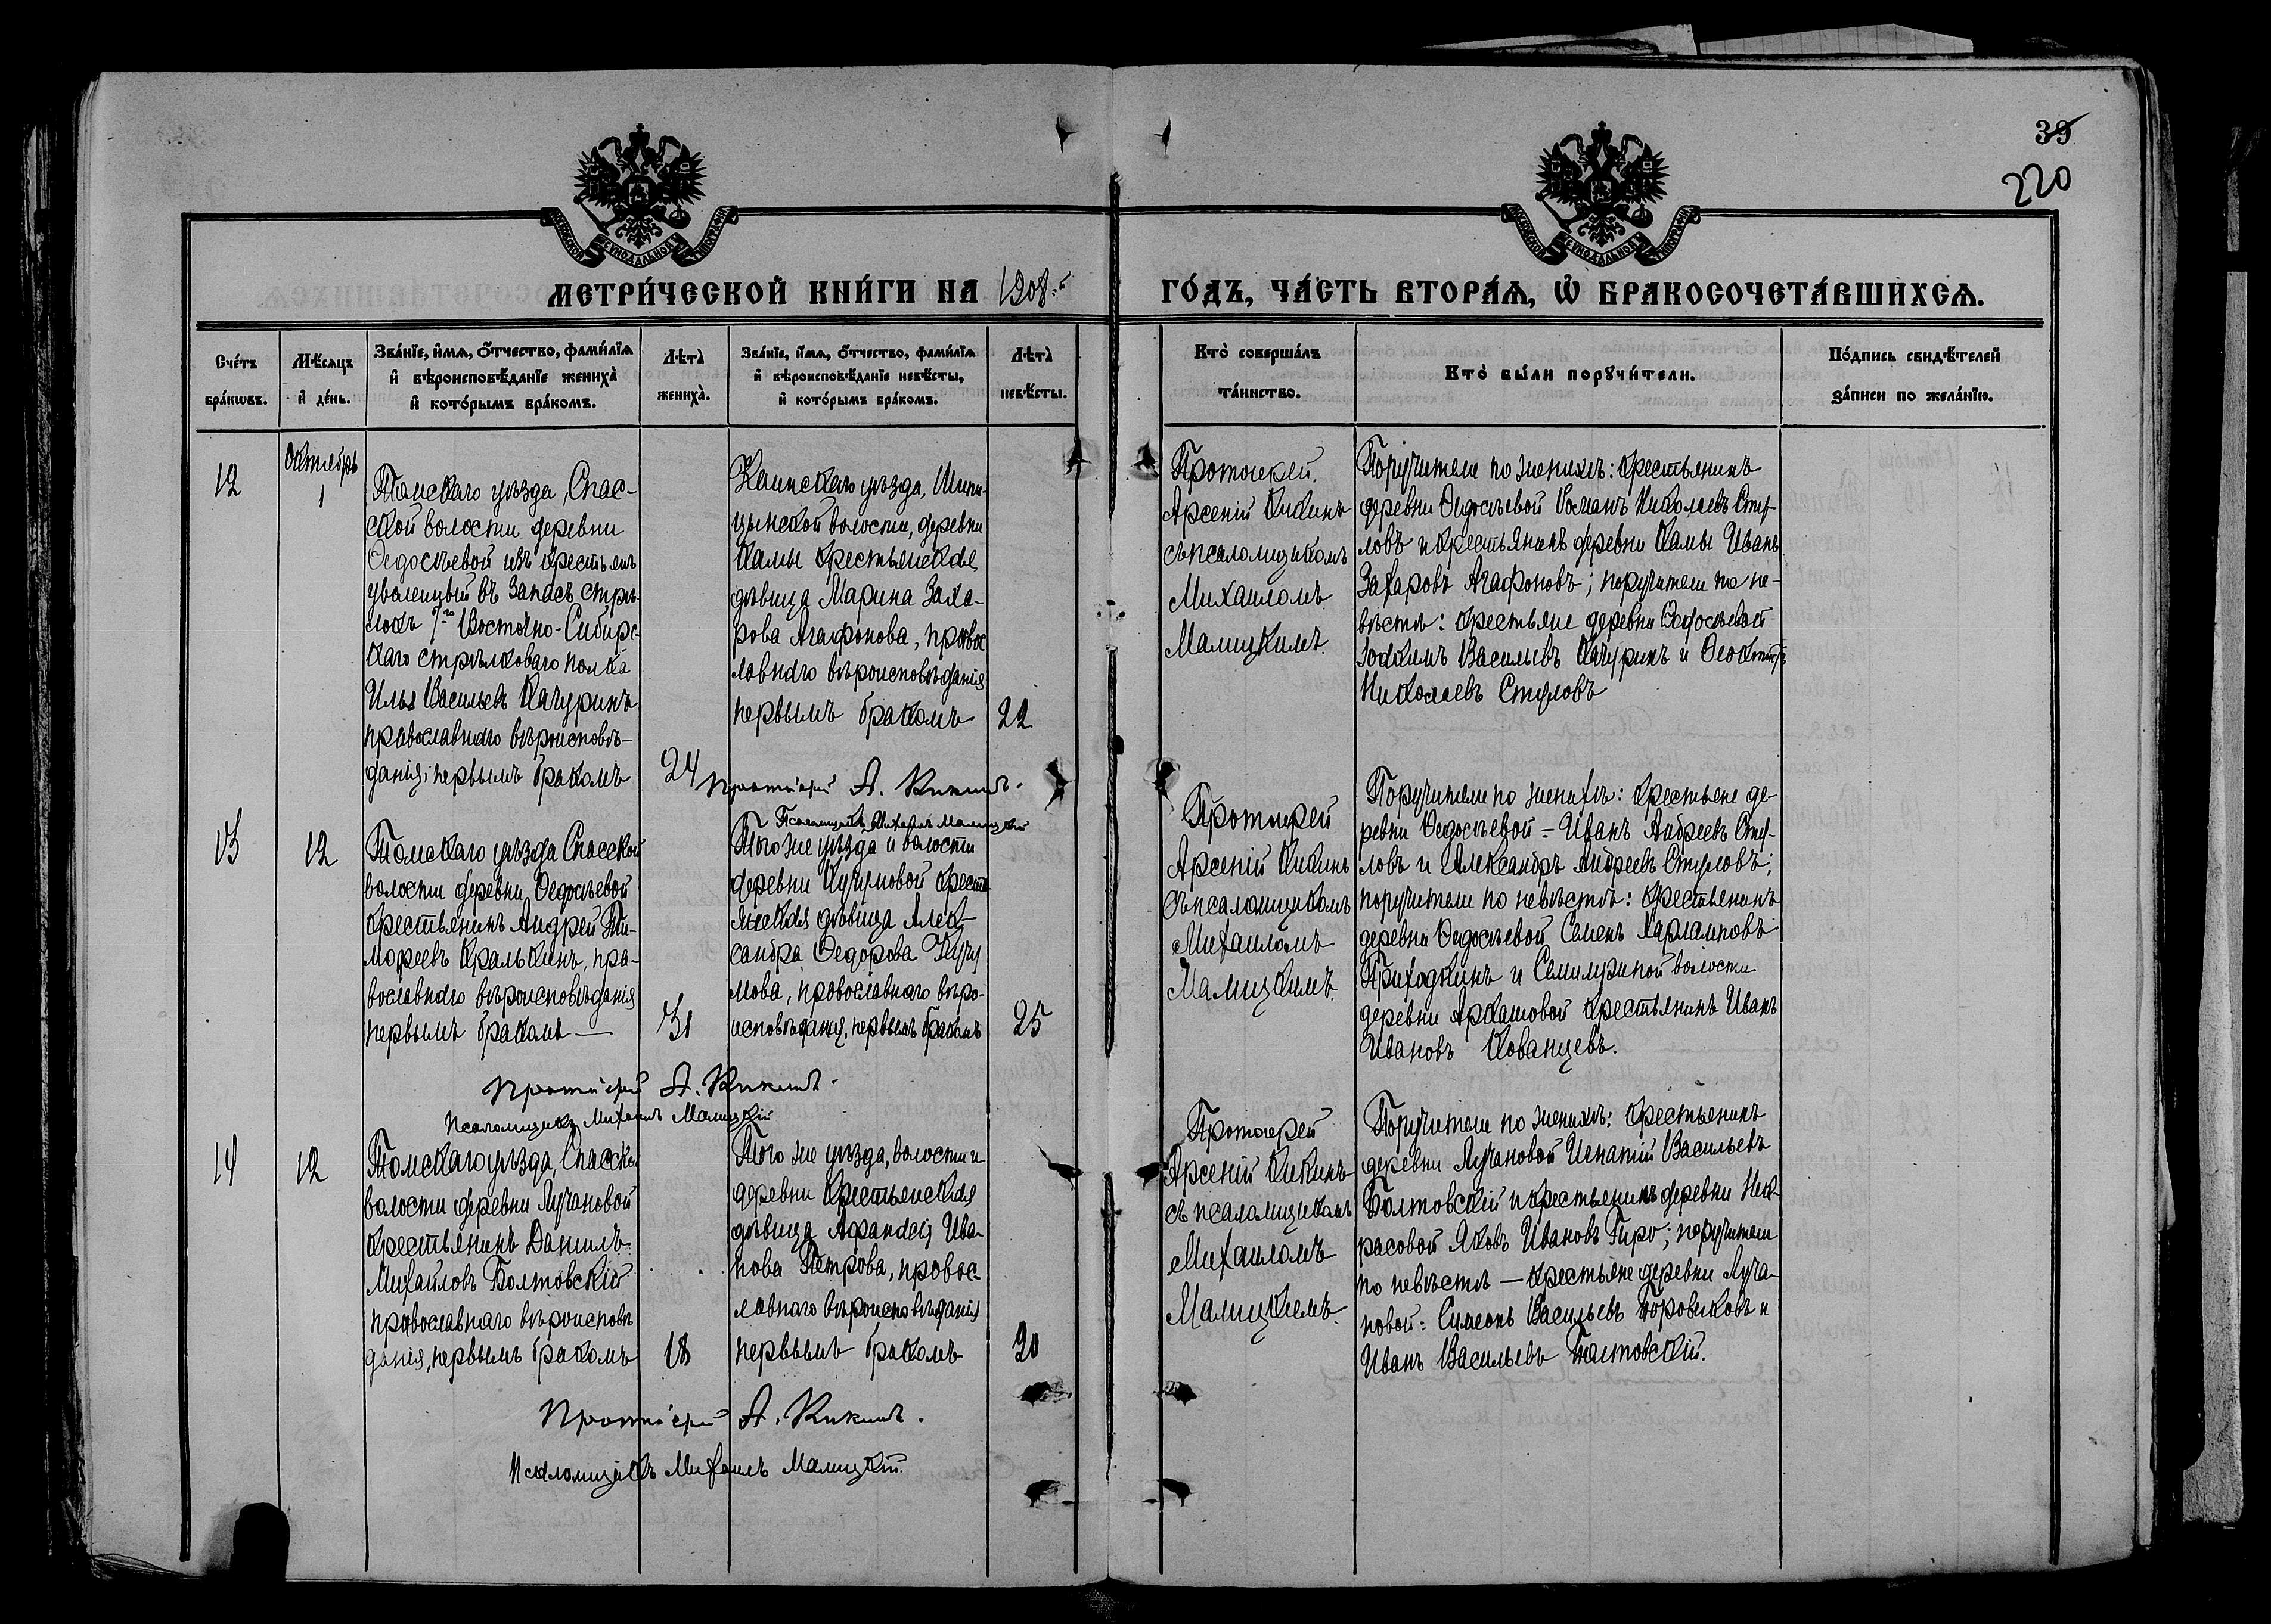 39
220
МОСКОВСКОЙ СѴНОДАЛЬНОЙ ТИПОГРАФІИ
МОСКОВСКОЙ СѴНОДАЛЬНОЙ ТИПОГРАФІИ
МЕТРИ́ЧЕСКОЙ КНИ́ГИ НА 1908.
ГО́ДЪ, ЧА́СТЬ ВТОРА́Ѧ, Ѡ҆ БРАКОСОЧЕТА́ВШИХСѦ.
Сче́тъ
бра́кѡвъ.
Мѣ́сѧцъ
и҆ де́нь.
Зва́нїе, и҆́мѧ, ѻ҆́тчество, фами́лїѧ
и҆ вѣроисповѣ́данїе жениха̀
и҆ кото́рымъ бра́комъ.
Лѣ́та̀
жениха̀.
Зва́нїе, и҆́мѧ, ѻ҆́тчество, фами́лїѧ
и҆ вѣроисповѣ́данїе невѣ́сты,
и҆ кото́рымъ бра́комъ.
Лѣ́та̀
невѣ́сты.
Кто̀ соверша́лъ
та́инство.
Кто̀ бы́ли порꙋчи́тели.
По́дпись свидѣ́телей
за́писи по жела́нїю.
12
Октябрь
1
Томскаго уѣзда, Спас-
ской волости деревни
Ѳедосѣевой изъ крестьянъ
уволенный въ запасъ стрѣ-
локъ Восточно-Сибирс-
каго стрѣлковаго полка
Илья Васильевъ Качуринъ
православнаго вѣроисповѣ-
данія, первымъ бракомъ
24
Каинскаго уѣзда, Шипи-
цынской волости, деревни
Камы крестьянская
дѣвица Марина Заха-
рова Агафонова, правос
лавнаго вѣроисповѣданія
первымъ бракомъ
22
Протоіерей
Арсеній Кикинъ
съ псаломщикомъ
Михаиломъ
Малицкимъ.
Поручители по женихѣ: крестьянинъ
деревни Ѳедосѣевой Романъ Николаевъ Сту-
ловъ и крестьянинъ деревни Камы Иванъ
Захаровъ Агафоновъ; поручители по не-
вѣстѣ: крестьяне деревни Ѳедосѣевой
Іоакимъ Васильевъ Качуринъ и Ѳеоктистъ
Николаевъ Стуловъ
Протоіерей А. Кикинъ.
Псаломщикъ Михаилъ Малицкій
13
12
Томскаго уѣзда Спасской
волости деревни Ѳедосѣевой
крестьянинъ Андрей Ти-
мофеевъ Кралькинъ, пра-
вославнаго вѣроисповѣданія
первымъ бракомъ —
31
Того же уѣзда и волости
деревни Кучумовой кресть
янская дѣвица Алек-
сандра Ѳедорова Кучу
мова, православнаго вѣро-
исповѣданія, первымъ бракомъ
25
Протоіерей
Арсеній Кикинъ
съ псаломщикомъ
Михаиломъ
Малицкимъ.
Поручители по женихѣ: крестьяне де-
ревни Ѳедосѣевой – Иванъ Андреевъ Сту-
ловъ и Александръ Андреевъ Стуловъ;
поручители по невѣстѣ: крестьянинъ
деревни Ѳедосѣевой Семенъ Харламповъ
Приходкинъ и Семилужной волости
деревни Аркашовой крестьянинъ Иванъ
Ивановъ Кованцевъ.
Протоіерей А. Кикинъ.
Псаломщикъ Михаилъ Малицкій
14
12
Томскаго уѣзда, Спасской
волости деревни Лучановой
крестьянинъ Даниилъ
Михайловъ Болтовскій
православнаго вѣроисповѣ
данія, первымъ бракомъ
18
Того же уѣзда, волости и
деревни крестьянская
дѣвица Афанасія Ива-
нова Петрова, правос-
лавнаго вѣроисповѣданія
первымъ бракомъ
20
Протоіерей
Арсеній Кикинъ
съ псаломщикомъ
Михаиломъ
Малицкимъ.
Поручители по женихѣ: крестьянинъ
деревни Лучановой Игнатій Васильевъ
Болтовскій и крестьянинъ деревни Нек-
расовой Яковъ Ивановъ Гиро; поручители
по невѣстѣ — крестьяне деревни Луча-
новой: Симеонъ Васильевъ Боровиковъ и
Иванъ Васильевъ Болтовскій.
Протоіерей А. Кикинъ.
Псаломщикъ Михаилъ Малицкій.